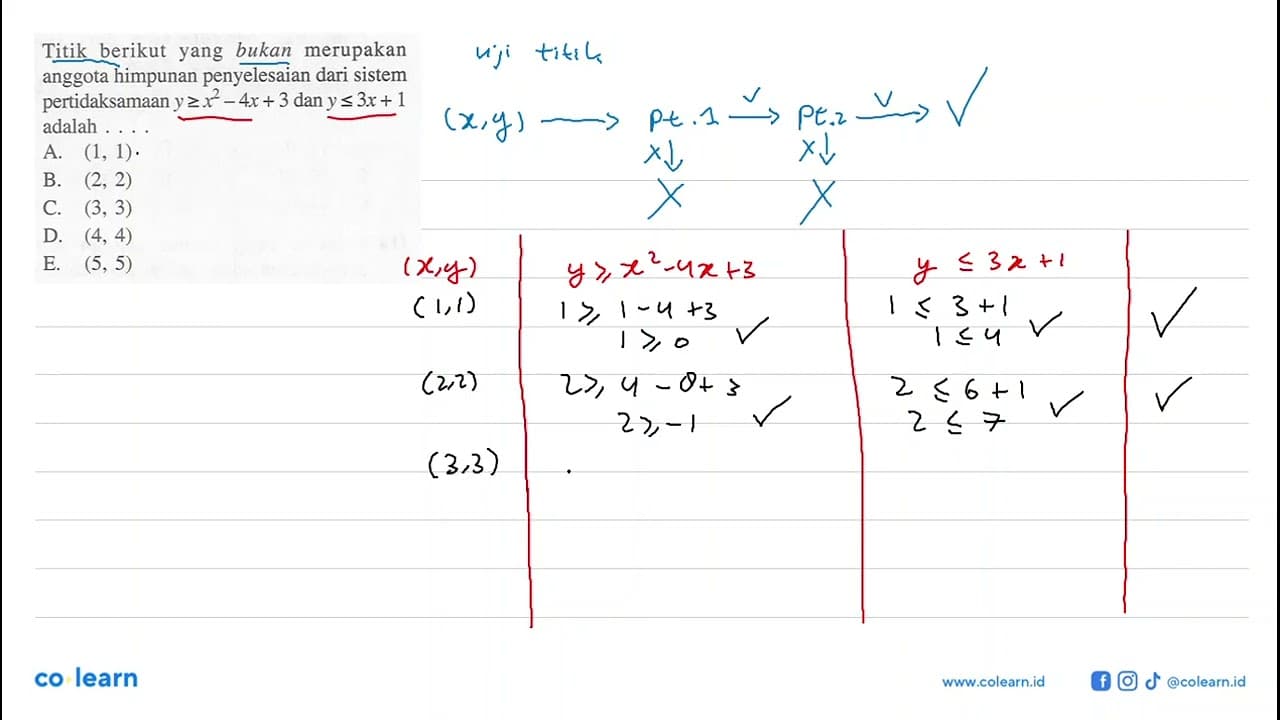 Titik berikut yang bukan merupakan
anggota himpunan penyelesaian dari sistem
pertidaksamaan y ≥ x² – 4x + 3 dan y ≤ 3x + 1
adalah . . . .
A. (1, 1)
B. (2, 2)
C. (3, 3)
D. (4, 4)
E. (5, 5)
uji titik
(x,y) → pt.1 √→ pt.2 √→ ✓
x↓ x↓
X X
(x,y) y ≥ x²-4x+3 y ≤ 3x+1
(1,1) 1 ≥ 1-4+3 1 ≤ 3+1
1 ≥ 0 ✓ 1 ≤ 4 ✓ ✓
(2,2) 2 ≥ 4-8+3 2 ≤ 6+1
2 ≥ -1 ✓ 2 ≤ 7 ✓ ✓
(3,3)
co learn
www.colearn.id @colearn.id